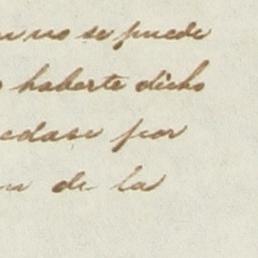 no se puede
haberte dicho
por
de la